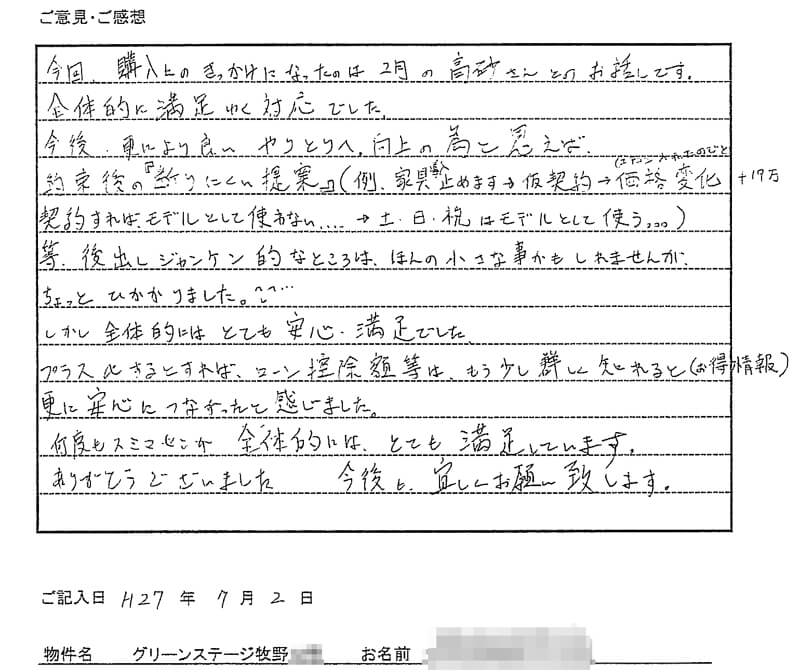 ご意見・ご感想
今回、購入上のきっかけになったのは2月の高砂さんとのお話しです。
全体的に満足ゆく対応でした。
今後、更により良い やりとりへ、向上の為と思えば、
約束後の『断りにくい提案』(例、家具止めます→仮契約→価格変化 +19万
契約すれば、モデルとして使わない....→土・日・祝はモデルとして使う。。。)
等、後出しジャンケン的なところは、ほんの小さな事かもしれませんが、
ちょっと ひかかりました。^^...
しかし全体的には とても 安心・満足でした。
プラス化さるとすれば、ローン控除額等は、もう少し群しく知れると(お得情報)
更に安心につながったと感じました。
何度もスミマセンが 全体的には、とても 満足しています。
ありがとうございました 今後も、宜しくお願い致します。
ご記入日 H27 年 7 月 2 日
物件名 グリーンステージ牧野 お名前